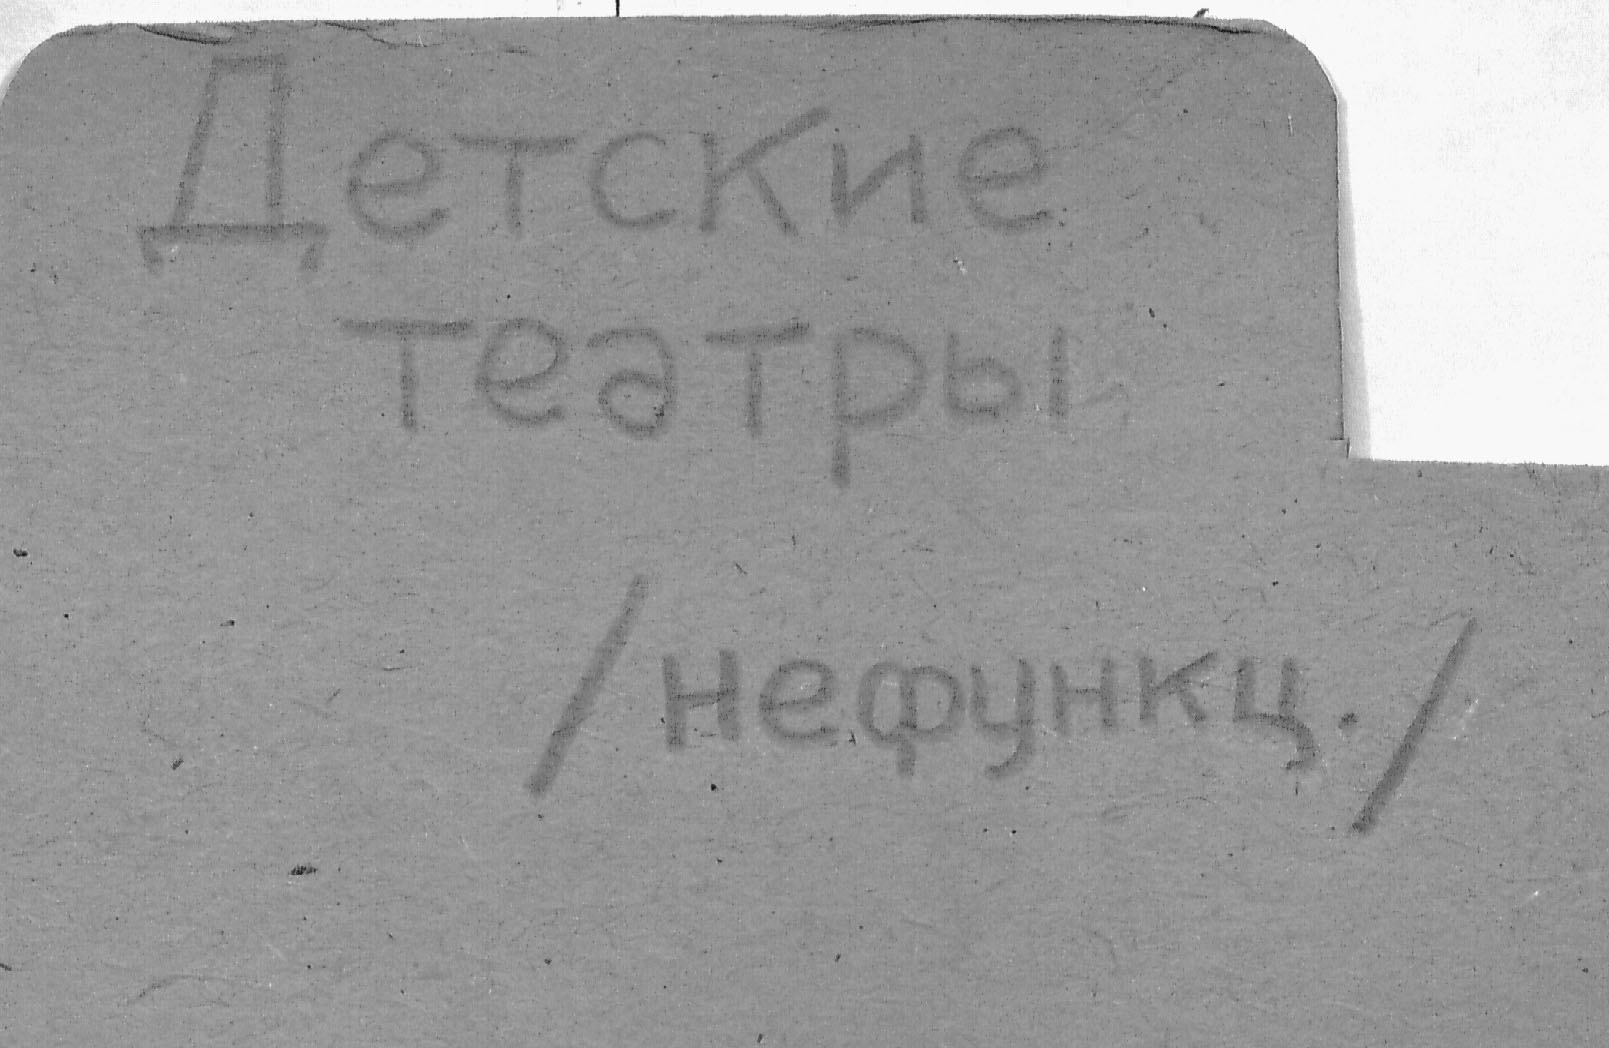 Детские
театры
/нефункц./